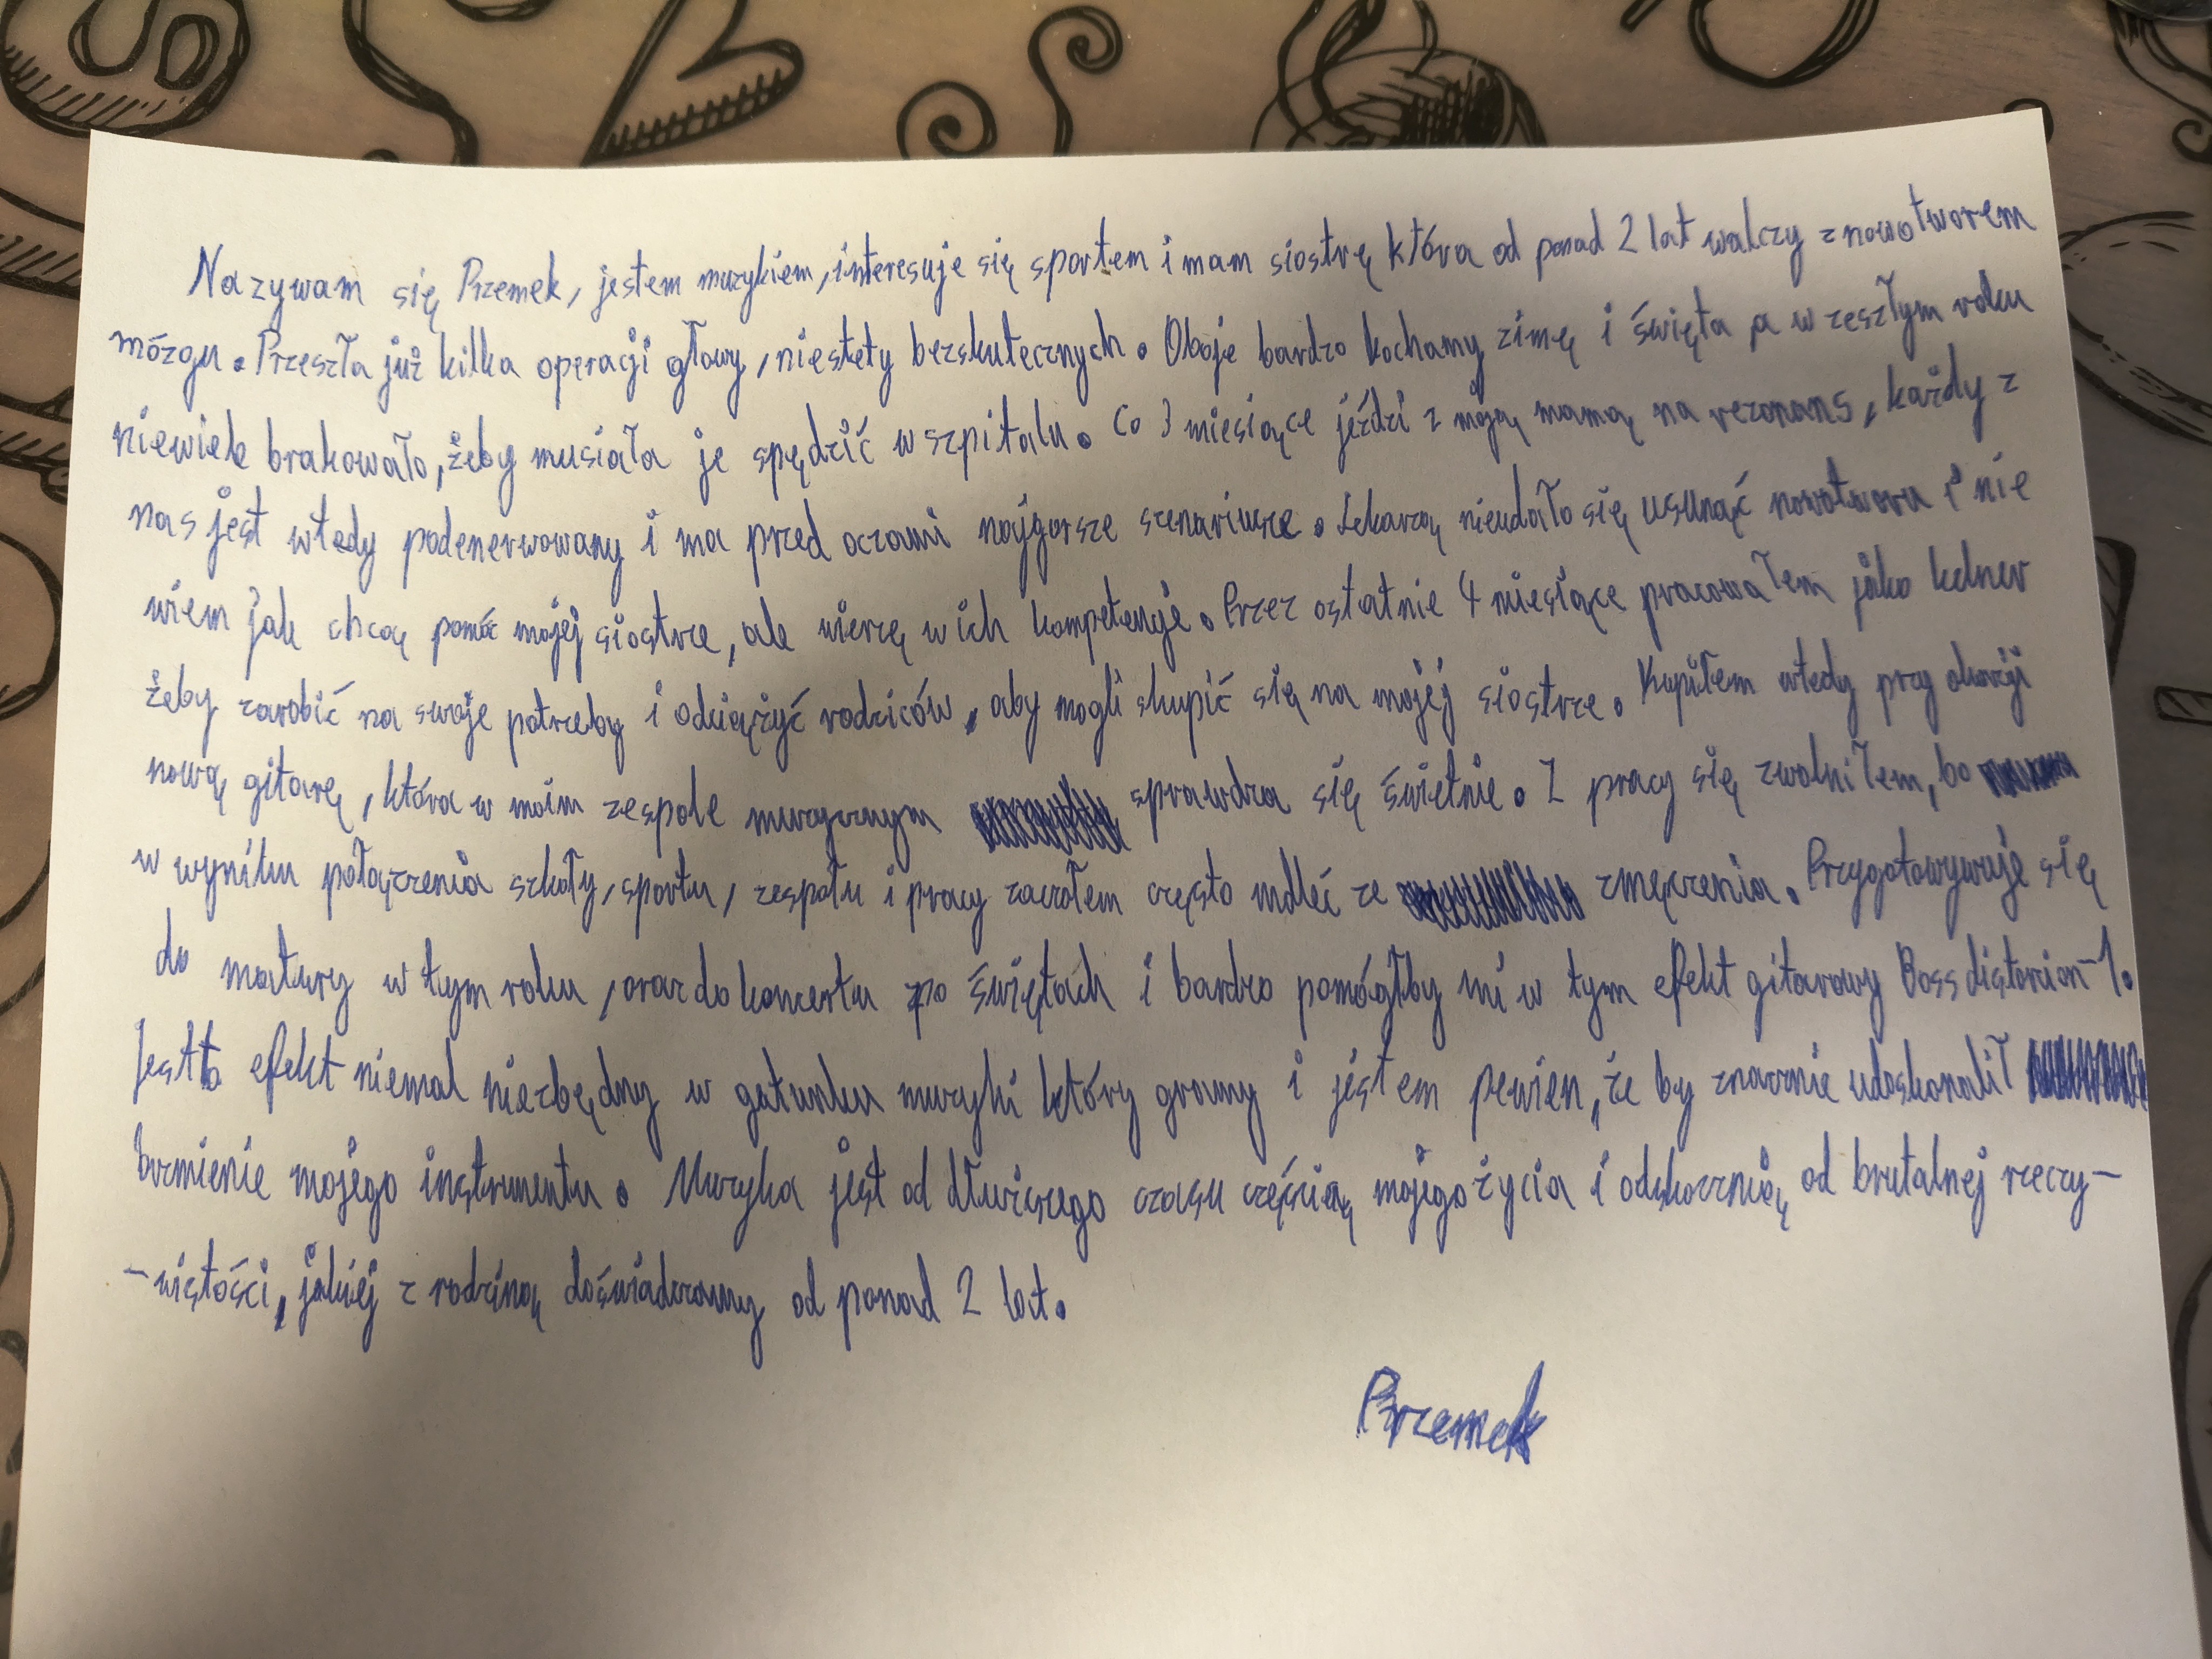 Nazywam się Przemek, jestem muzykiem, interesuje się sportem i mam siostrę która od ponad 2 lat walczy z nowotworem
mózgu. Przeszła już kilka operacji głowy, niestety bezskutecznych. Oboje bardzo kochamy zimę i święta, a w zeszłym roku
niewiele brakowało, żeby musiała je spędzić w szpitalu. Co 3 miesiące jeździ z moją mamą na rezonans, każdy z
nas jest wtedy podenerwowany i ma przed oczami najgorsze scenariusze. Lekarzą nieudało się usunąć nowotworu i nie
wiem jak chcą pomóc mojej siostrze, ale wierzę w ich kompetencje. Przez ostatnie 4 miesiące pracowałem jako kelner
żeby zarobić na swoje potrzeby i odciążyć rodziców, aby mogli skupić się na mojej siostrze. Kupiłem wtedy przy okazji
nową gitarę, która w moim zespole muzycznym sprawdza się świetnie. Z pracy się zwolniłem, bo
w wyniku połączenia szkoły, sportu, zespołu i pracy zacząłem często mdleć ze zmęczenia. Przygotowywuje się
do matury w tym roku, oraz do koncertu po świętach i bardzo pomógłby mi w tym efekt gitarowy Boss distorcion-1.
Jest to efekt niemal niezbędny w gatunku muzyki który gramy i jestem pewien, że by znacznie udoskonalił
brzmienie mojego instrumentu. Muzyka jest od dłuższego czasu częścią mojego życia i odskocznią od brutalnej rzeczy-
-wistości, jakiej z rodziną doświadczamy od ponad 2 lat.
Przemek